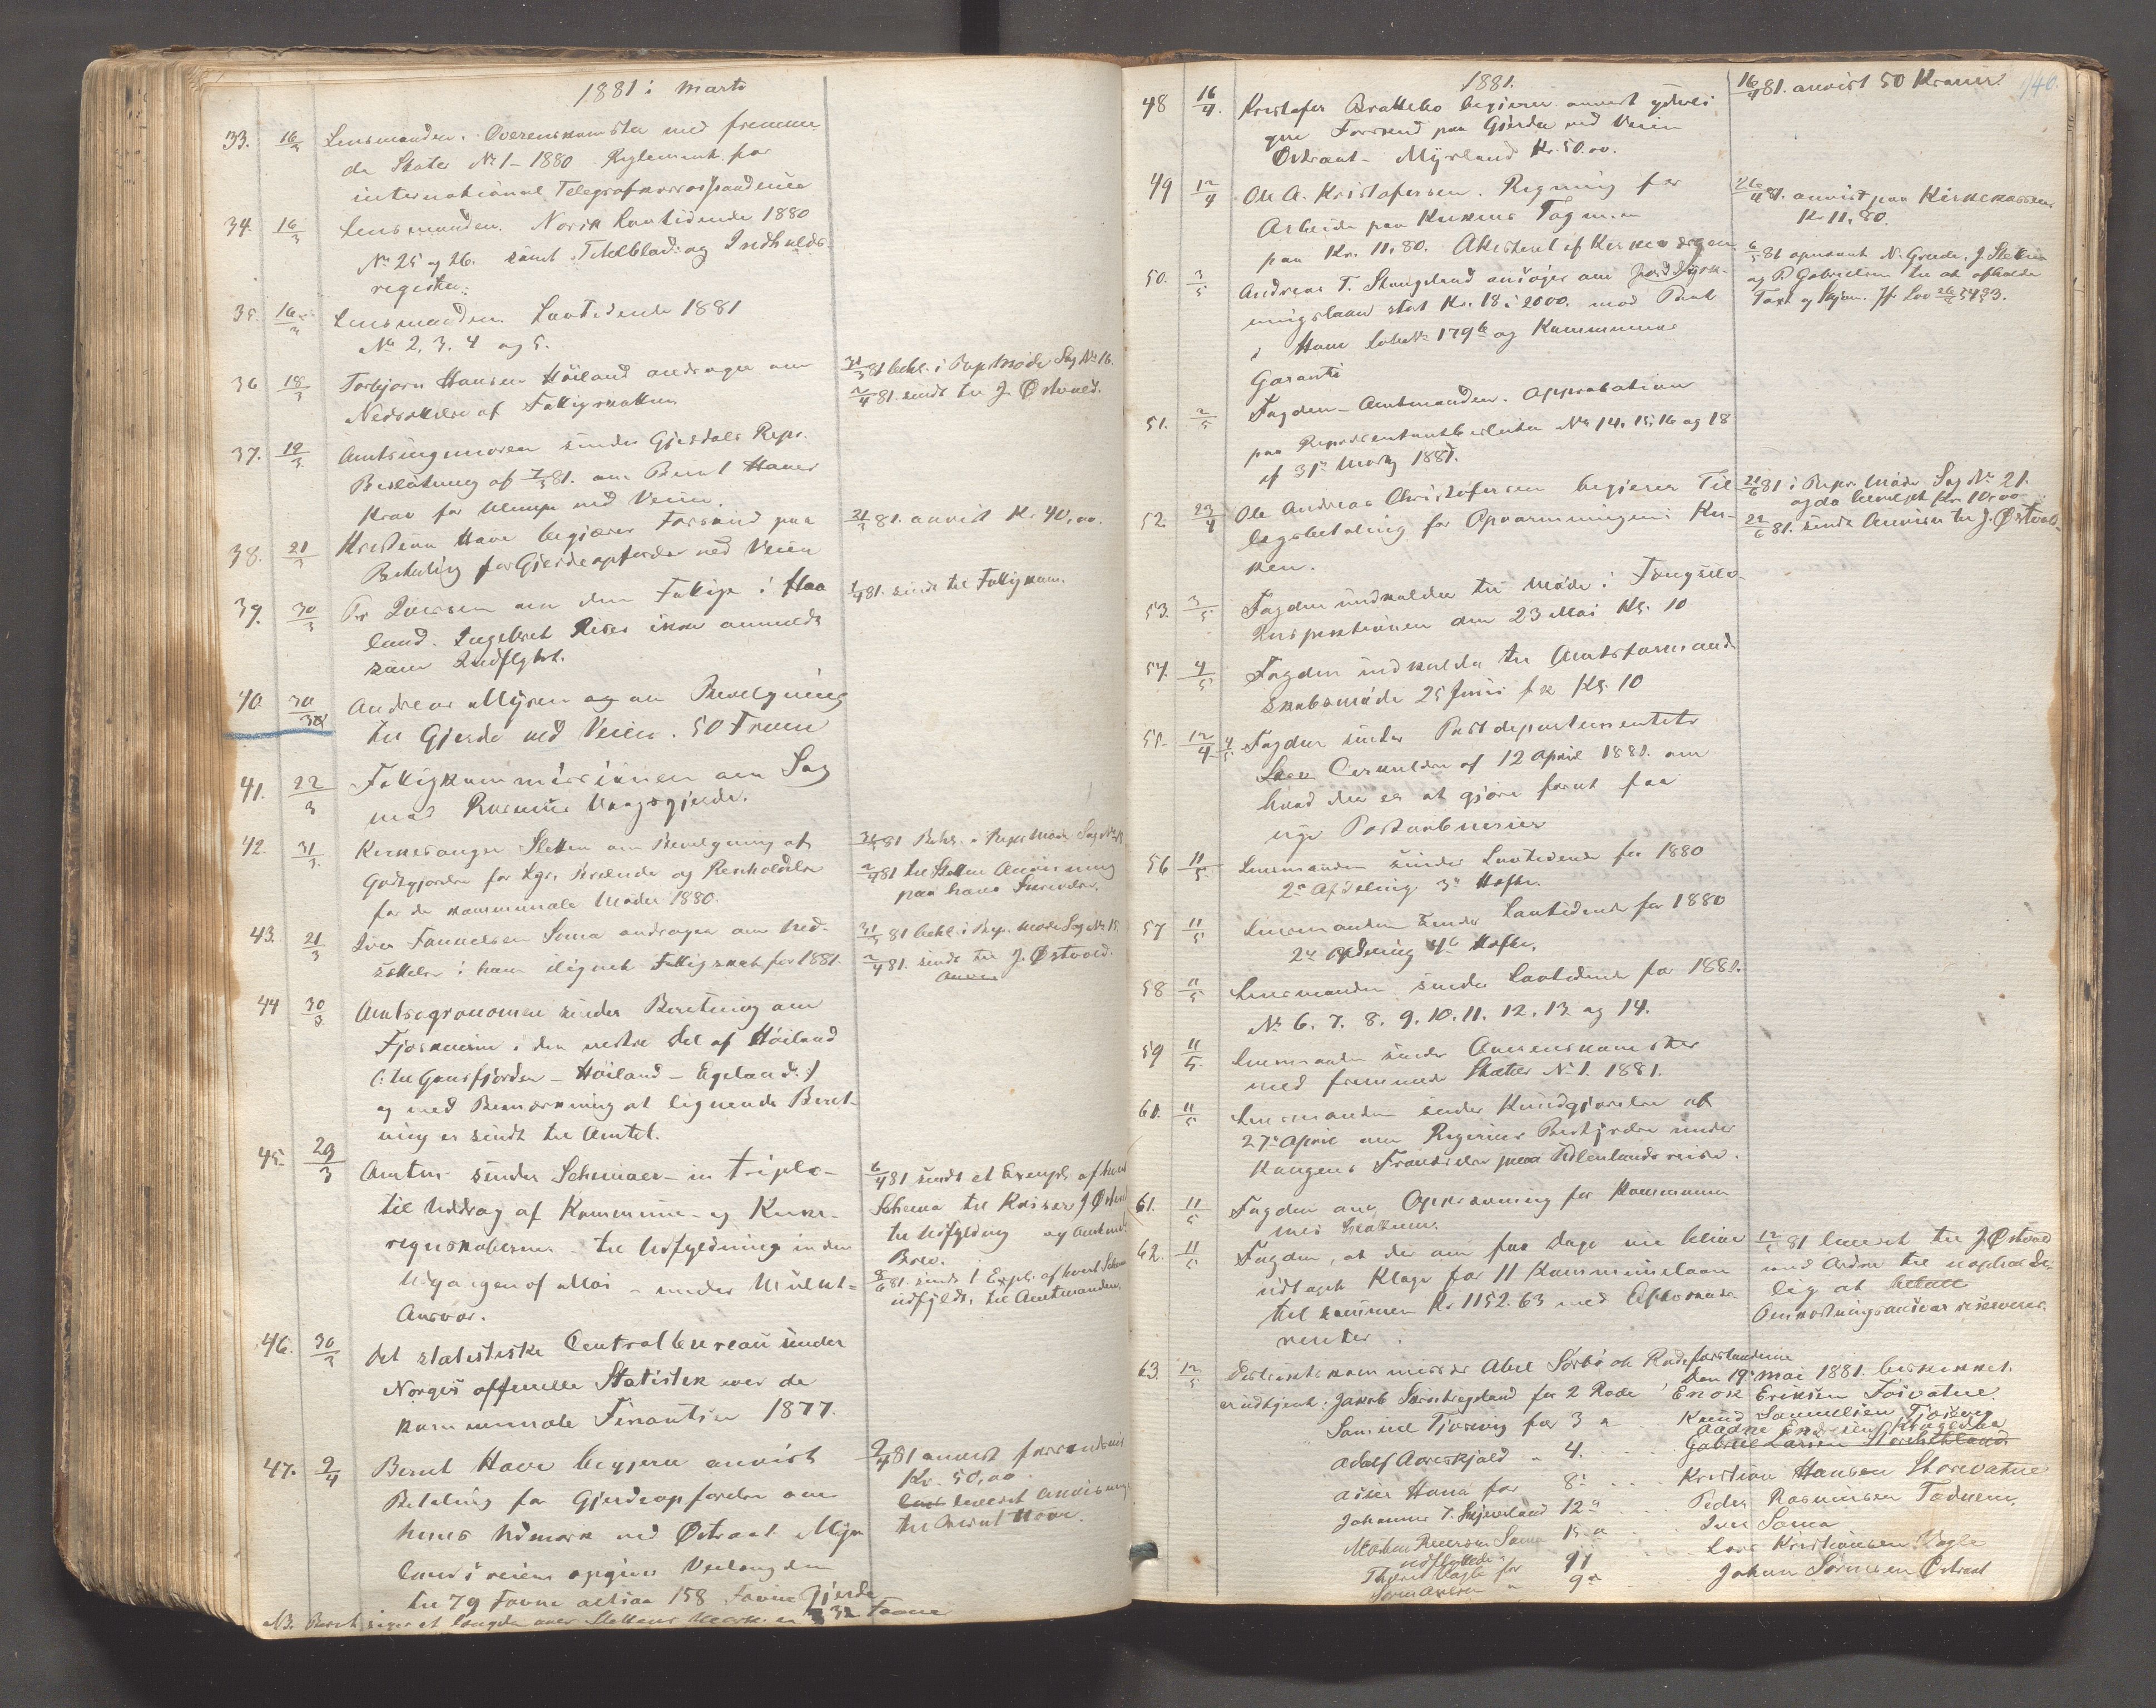 1881 i Marts
33. 16/3 Lensmanden. Overenskomster med fremme-
de Stater No 1 - 1880. Reglement for
international Telegrafkorrespondence
34. 16/3 Lensmanden. Norsk Lovtidende 1880
No 25 og 26. samt Titelblad og Indholds-
register.
35. 16/3 Lensmanden Lovtidende 1881
No 2, 3, 4 og 5.
36 18/3 Torbjørn Hansen Høiland andrager om
Nedsættelse af Fattigskatten
31/3 81 behl. i Rep. Møde Sag No 16.
2/4 81. sendt til J. Østvold.
37. 19/3 Amtsingeniøren sender Gjesdals Repr.
Beslutning af 7/3 81. om Bernt Haves
Krav for Ulempe ved Veien.
38. 21/3 Kristian Have begjærer Forskud paa
Betaling for Gjerdeopførelse ved Veien
21/3 81. anvist Kr. 40,00.
39. 30/3 Pr Iversen om den Fattige i Haa
land. Ingebret Reier ikke anmeldt
som Indflyt.
1/4 81. sendt til Fattigkom.
40. 30/3 Andreas Myren og om Bevilgning
til Gjerde ved Veien. 50 Favne
41. 22/3 Fattigkommissionen om Sag
mod Rasmus Vaagsgjerde.
42. 31/3 Kirkesanger Sletten om Bevilgning af
Godtgjørelse for Lys, Brænde og Renholdelse
for de kommunale Møder 1880.
31/3 81 Behl. i Repr Møde Sag No
2/4 81 til Sletten Anvisning
paa hans Skrivelse.
43. 21/3 Iver Tønnessen Soma andrager om Ned-
sættelse i ham ilignet Fattigskat for 1881.
31/3 81 behl. i Rep. Møde Sag No 15
2/4 81. sendt til J. Østvold.
44 30/3 Amtsagronomen sender Beretning om
Fjøskurene i den vestre Del af Høiland
(: til Gansfjorden - Høiland - Egeland :)
og med Bemærkning at lignende Beret-
ning er sendt til Amtet.
45. 29/3 Amtm sender Schemaer in triplo -
til Uddrag af Kommune- og Kirke-
regnskaberne - til Udfyldning inden
Udgangen af Mai - under Mulkt-
Ansvar.
6/4 81 sendt et Exempl. af hvert
Schema til Kasserer J. Østvold
til Udfyldning og Amtmd.
Brev.
8/6 81. sendt 1 Expl. af hvert Schema
udfyldt, til Amtmanden.
46. 30/3 Det statistiske Centralbureau sender
Norges officielle Statistik over de
kommunale Finantser 1877.
47. 2/4 Bernt Have begjærer anvist
Betaling for Gjerdeopførelse om
hans Udmark ved Østraat - Myr
lands veien opgiver Veilængden
til 79 Favne altsaa 158 Favne Gjerde
2/4 81 anvist forskudsvis
Kr. 50,00.
leveret Anvisning
til Bernt Have.
NB. Bernt siger at Længden over Slettens Mark er 32 Favne
1881.
140.
48 16/4. Kristofer Brattebo begjærer anvist yderli
gere Forskud paa Gjerde ved Veien
Østraat - Myrland Kr. 50.00.
16/4 81. anvist 50 Kroner.
49 12/4 Ole A. Kristofersen. Regning for
Arbeide paa Kirkens Tag m. m
paa Kr. 11,80. Attesteret af Kirkeværgen
26/4 81. anvist paa Kirkekassen
Kr. 11,80.
50. 3/5 Andreas T. Skangeland ansøger om Jorddyrk-
ningslaan stort Kr. 1800 à 2000. mod Pant
i Have Løbeno 179b og Kommunens
Garanti
6/5 81 opnævnt N. Grude, J. Sletten
og P. Gabrielsen til at afholde
Taxt og Skjøn. Jf. Lov
51. 2/5 Fogden - Amtmanden. Approbation
paa Repræsentantbeslutn. No 14, 15, 16 og 18
af 31te Marts 1881.
52. 23/4 Ole Andreas Christofersen begjærer Til-
lægsbetaling for Opvarmningen i Kir-
ken.
21/6 81 i Repr. Møde Sag No 21.
og da bevilget Kr. 10,00
22/6 81. sendt Anvisn. til J. Østvold.
53. 3/5 Fogden indkalder til Møde i Fængsels-
Inspektionen den 23 Mai Kl. 10
54. 4/5 Fogden indkalder til Amtsformand
skabsmøde 25 Juni f. k Kl. 10
55. 12/4 4/5 Fogden sender Postdepartementets
Cirkulære af 12 April 1881. om
hvad der er at gjøre forat faa
nye Postaabnerier
56 11/5 Lensmanden sender Lovtidende for 1880
2den Afdeling 3die Hefte.
57 11/5 Lensmanden sender Lovtidende for 1880
2den Afdeling 4de Hefte.
58 11/5 Lensmanden sender Lovtidende for 1881.
No 6. 7. 8. 9. 10. 11. 12. 13 og 14.
59 11/5 Lensmanden sender Overenskomster
med fremmede Stater No 1. 1881.
61. 11/5 Lensmanden sender Kundgjørelse af
27de April om Regjerings Bestyrelse under
Kongens Fraværelse paa Udenlandsreise.
61. 11/5 Fogden ang. Oppkrævning for Kommunen
med
62. 11/5 Fogden, at der om faa Dage vil blive
udtaget Klage for 11 Kommunelaan
tilsammen Kr 1152.63 med Afkomne
renter.
12/5 81 leveret til J. Østvold
med Ordre til uopholde-
lig at betale
Omkostningsansvar reserveres.
63. 12/5 Distriktskommissær Abel Sørbø ok Rodeforstanderne
er udtjent: Jakob Særstangeland for 2 Rode
Samuel Tjøsvoig for 3 "
Adolf Aareskjold " 4.
Asser Hana for 8de
Johannes T. Skjæveland 12 "
Morten Reiersen Soma 15 "
udflyttede:
Thore Vagle for 91
Søren Aasen " 9 "
Den 19de Mai 1881. beskikket.
Enok Eriksen Foivatne
Knud Samuelsen Tjøsvoig
Gabriel Larsen
Kristian Hansen Storevatne
Peder Rasmussen Foduem,
Iver Soma
Lars Kristiansen Vagle
Johan Sørensen Østraat